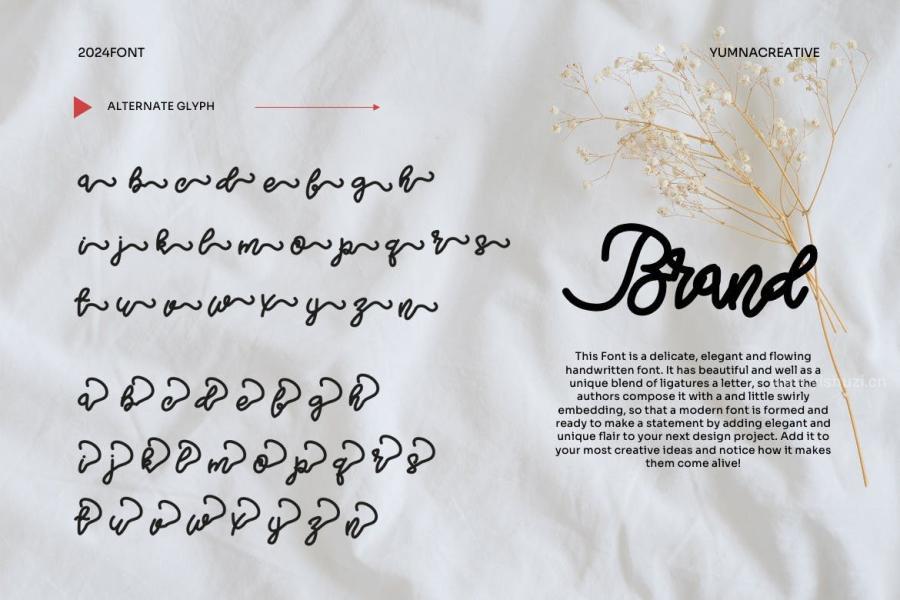 2024FONT
YUMNACREATIVE
ALTERNATE GLYPH
a b c d e f g h
i j k l m o p q r s
t u v w x y z n
a b c d e f g h
i j k l m o p q r s
t u v w x y z n
Brand
This Font is a delicate, elegant and flowing
handwritten font. It has beautiful and well as a
unique blend of ligatures a letter, so that the
authors compose it with a and little swirly
embedding, so that a modern font is formed and
ready to make a statement by adding elegant and
unique flair to your next design project. Add it to
your most creative ideas and notice how it makes
them come alive!